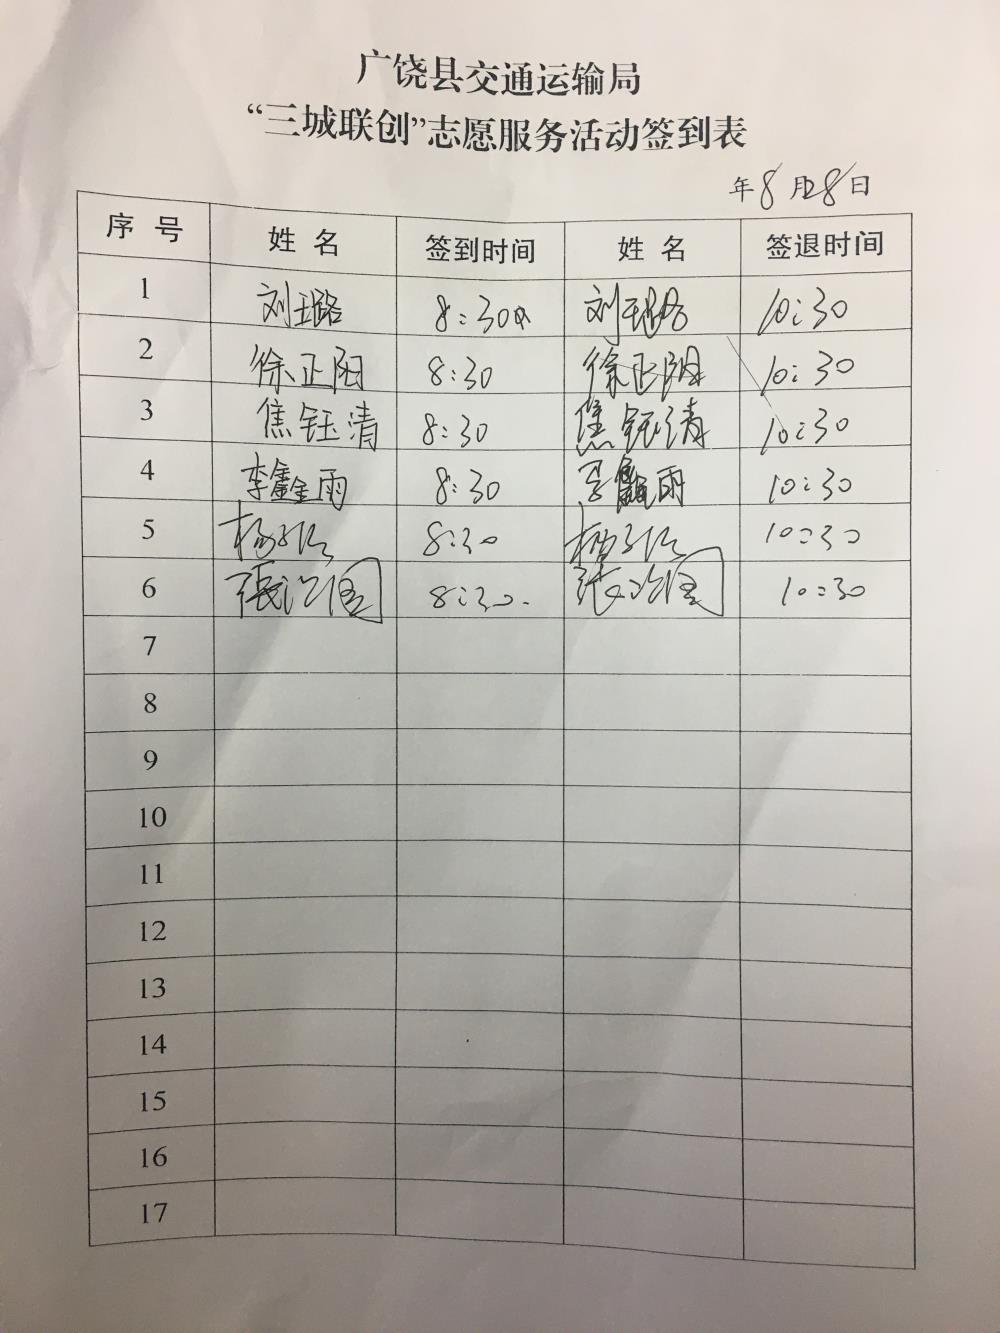 广饶县交通运输局
“三城联创”志愿服务活动签到表
年8月28日
序 号 姓 名 签到时间 姓 名 签退时间
1 刘玉璐 8:30 刘玉璐 10:30
2 徐正阳 8:30 徐正阳 10:30
3 焦钰清 8:30 焦钰清 10:30
4 李鑫雨 8:30 李鑫雨 10:30
5 8:30 10:30
6 8:30. 10:30
7
8
9
10
11
12
13
14
15
16
17